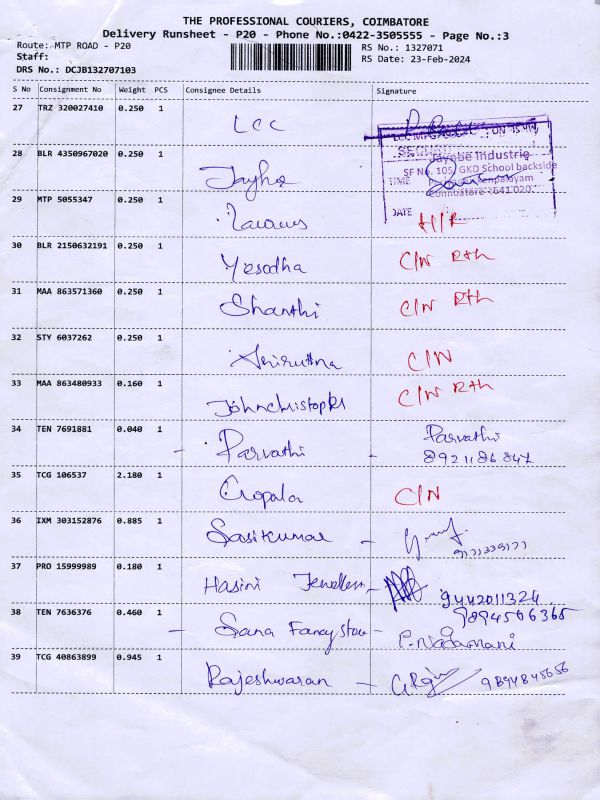 THE PROFESSIONAL COURIERS, COIMBATORE
Delivery Runsheet - P20 - Phone No.:0422-3505555 - Page No.:3
Route: MTP ROAD - P20 RS No.: 1327071
Staff: RS Date: 23-Feb-2024
DRS No.: DCJB132707103
S No Consignment No Weight PCS Consignee Details Signature
27 TRZ 320027410 0.250 1 LCC
28 BLR 4350967020 0.250 1
Jayabe Industrie
SF No. 105, GKD School backside
TIME
Coimbatore - 641 020
29 MTP 5055347 0.250 1
DATE
30 BLR 2150632191 0.250 1 Yesodha C/N Rth
31 MAA 863571360 0.250 1 Shanthi C/N Rth
32 STY 6037262 0.250 1 Aniruttna C/N
33 MAA 863480933 0.160 1 Johnchristopher C/N Rth
34 TEN 7691881 0.040 1 - Parvathi - Parvathi
8921186847
35 TCG 106537 2.180 1 Gopala C/N
36 IXM 303152876 0.885 1 Sasikumar -
37 PRO 15999989 0.180 1 Hasini Jewellers - 9442011324
38 TEN 7636376 0.460 1 - Sana Fancy store - 9894506365
39 TCG 40863899 0.945 1 Rajeshwaran - 9894845656